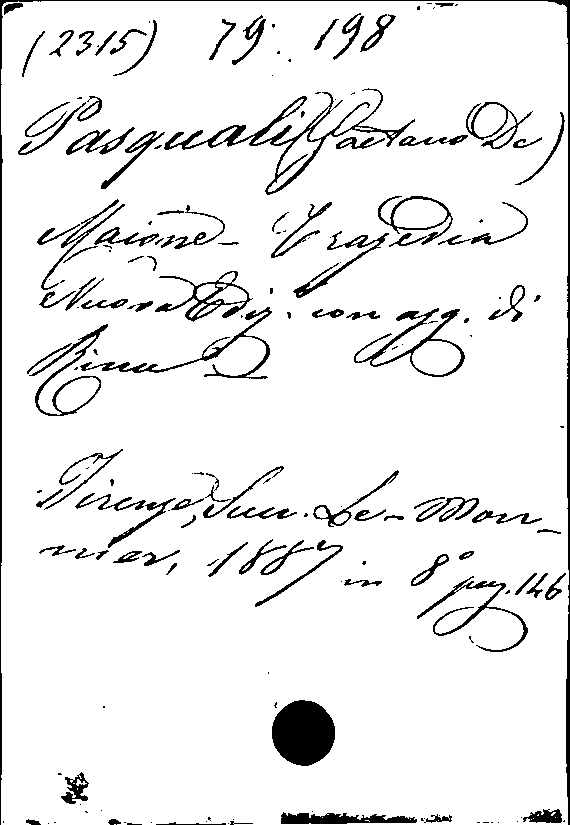 (2315) 79. 198
Pasquali (Gaetano De)
Maione - Tragedia
Nuova Ediz. con agg. di
Rime
Firenze, Succ. Le-Mon-
nier, 1887 in 8° pag. 146